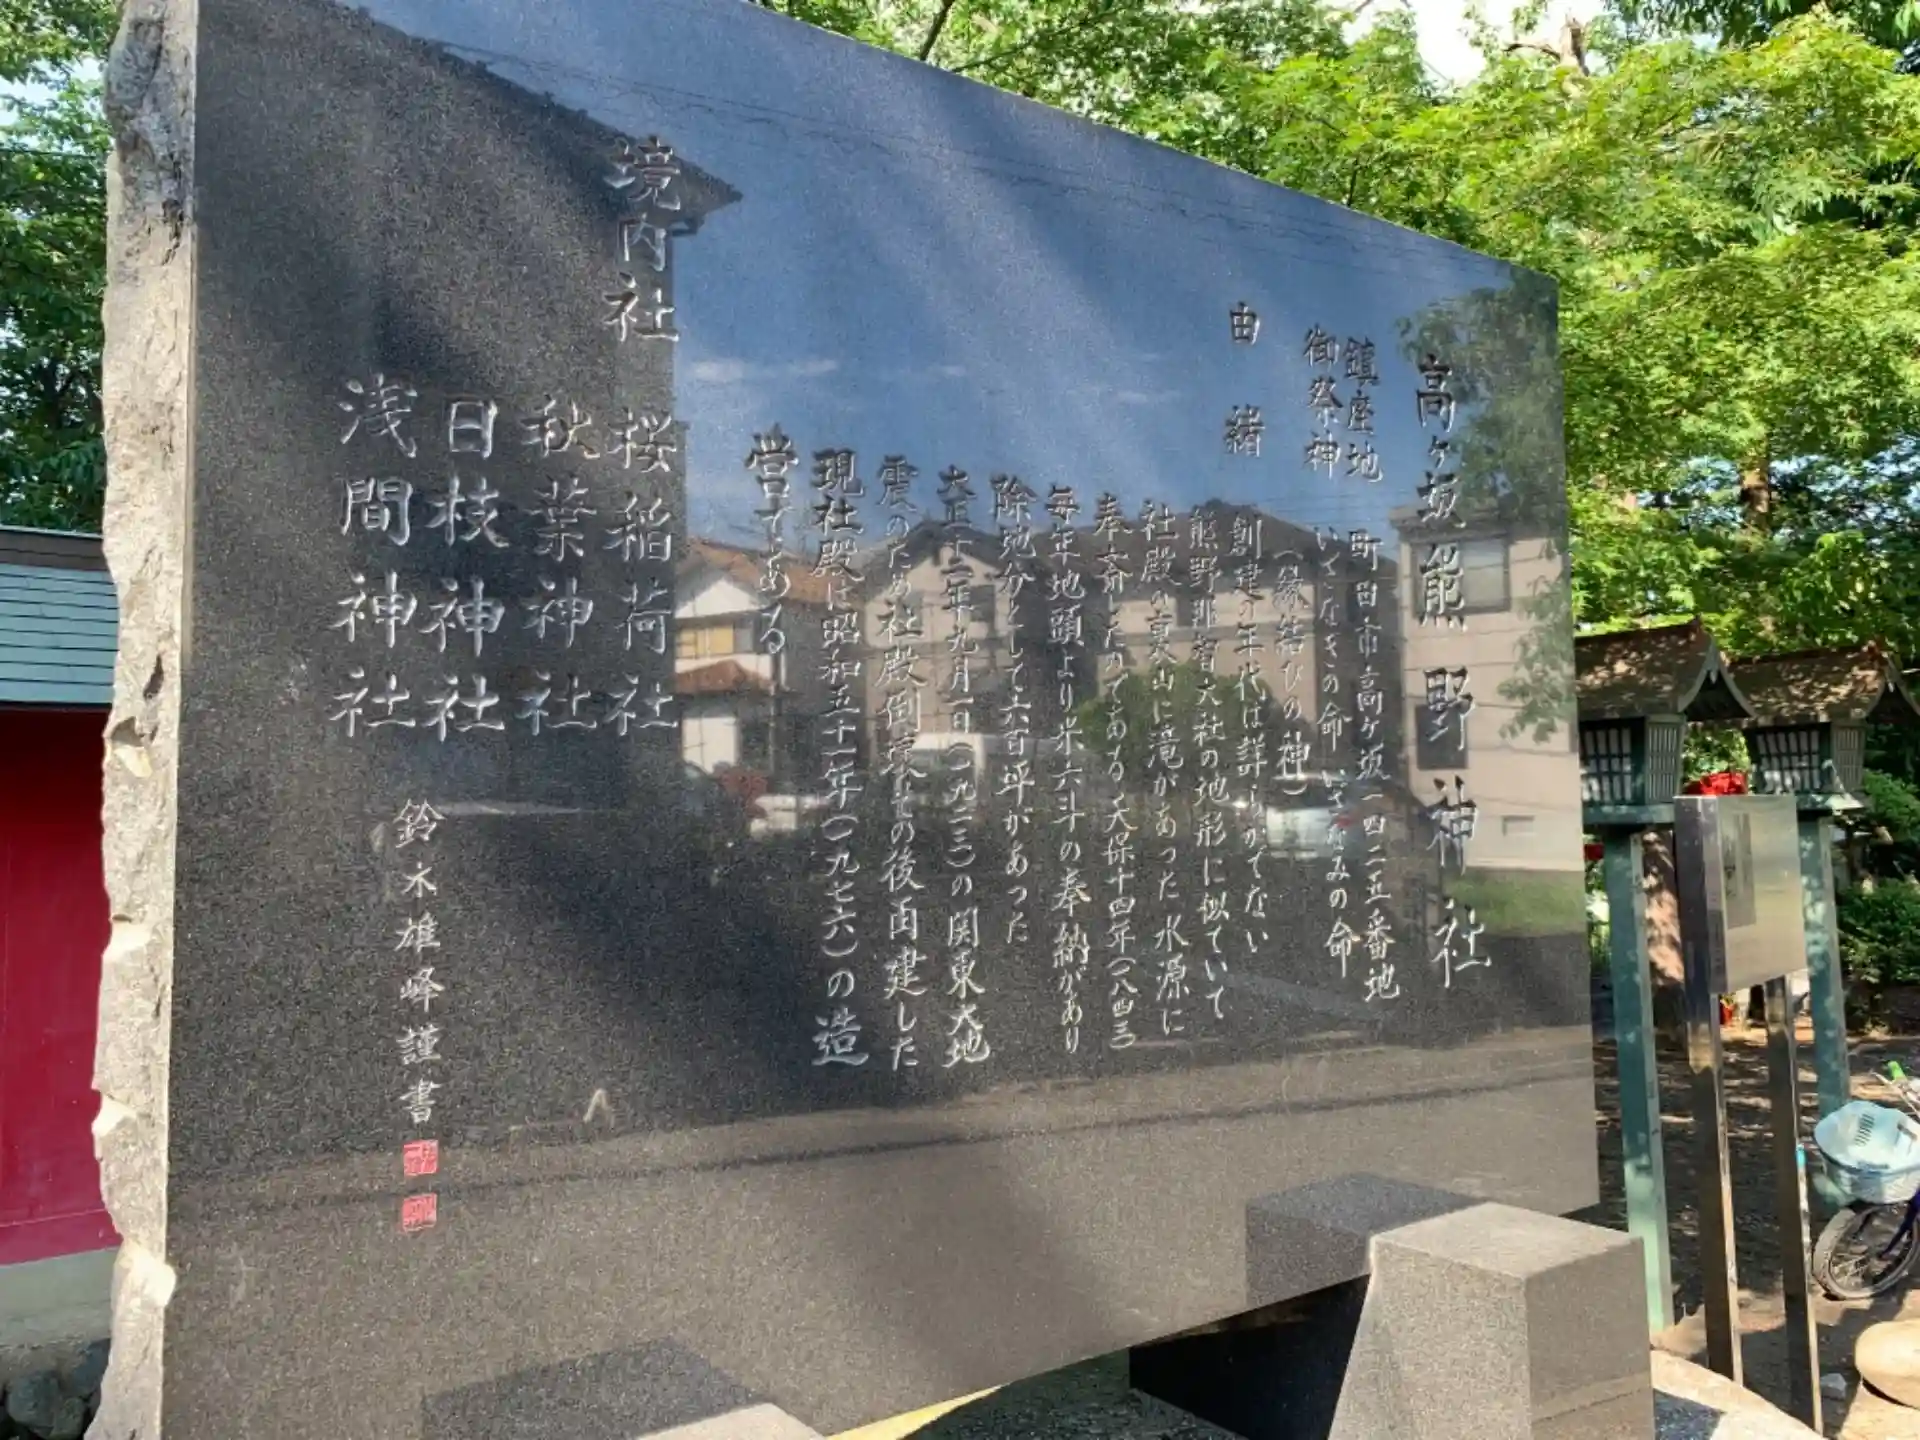 高ヶ坂熊野神社
鎮座地 町田市高ヶ坂一四二五番地
御祭神 いざなぎの命 いざなみの命
(縁結びの神)
由緒 創建の年代は詳らかでない
熊野那智大社の地形に似ていて
社殿の裏山に滝があった水源に
奉斎したのである天保十四年(一八四三)
毎年地頭より米六斗の奉納があり
除地分として六百坪があった
大正十二年九月一日(一九二三)の関東大地
震のため社殿倒壊その後再建した
現社殿は昭和五十一年(一九七六)の造
営である
境内社 桜稲荷社
秋葉神社
日枝神社
浅間神社
鈴木雄峰謹書